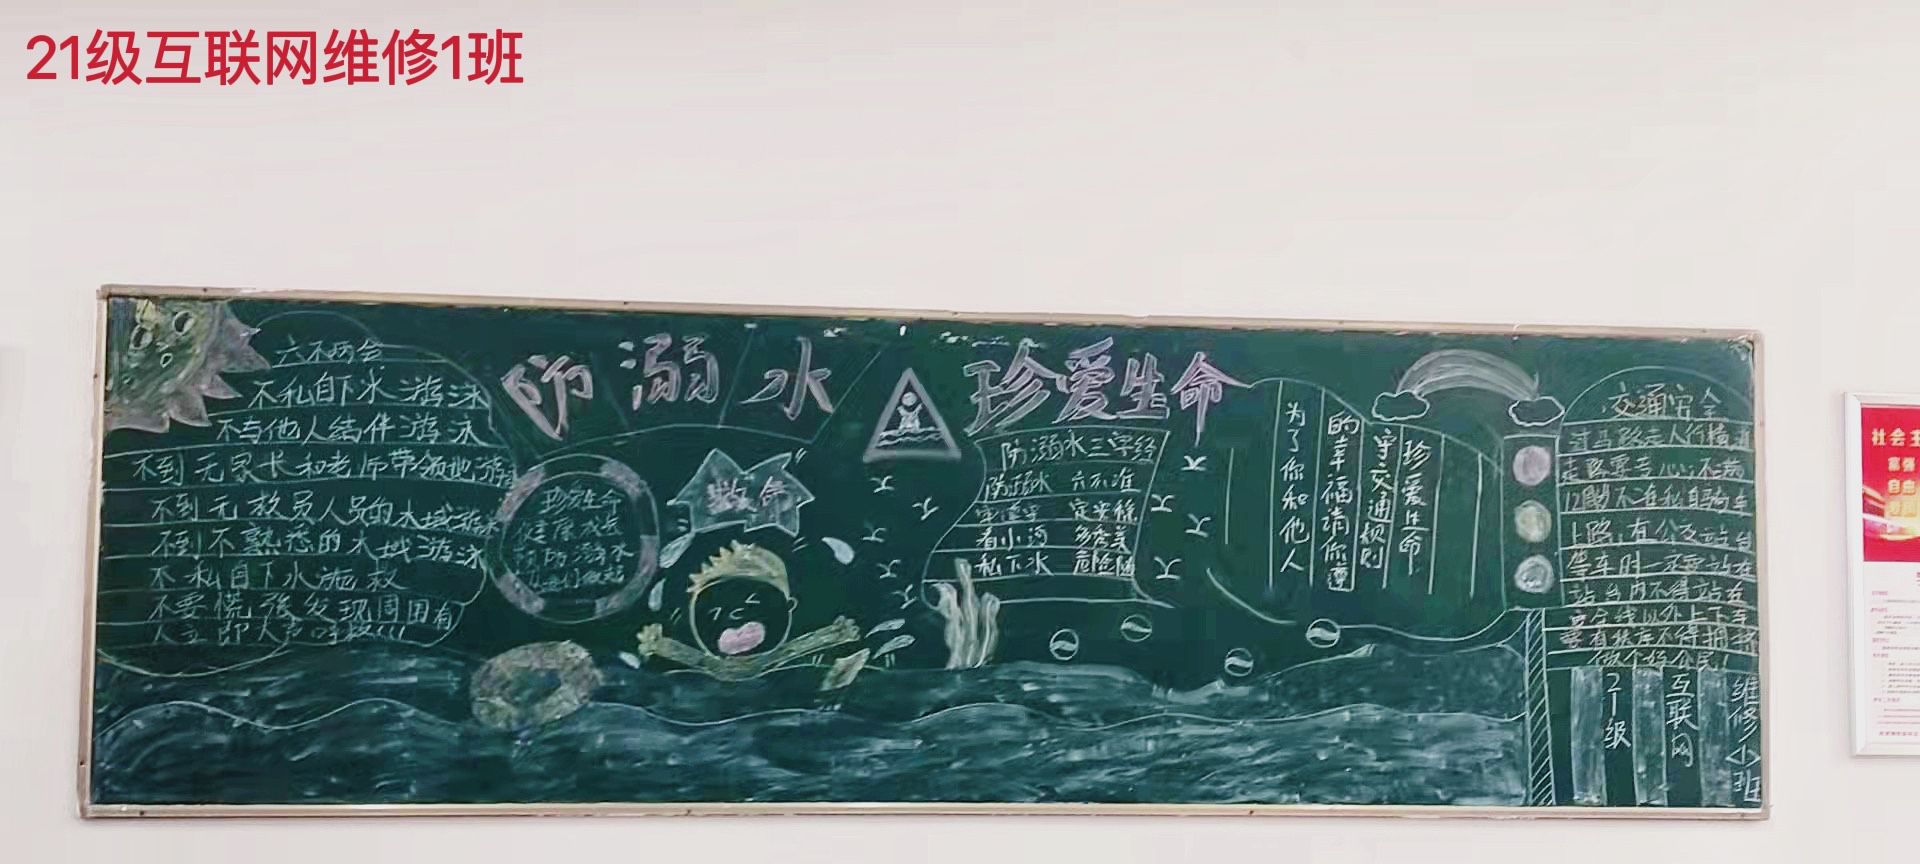 21级互联网维修1班
防溺水
珍爱生命
六不两会
不私自下水游泳
不与他人结伴游泳
不到无家长和老师带领地游
不到无救员人员的水域游泳
不到不熟悉的水域游泳
不私自下水施救
不要慌张发现周围有
人立即大声呼
珍爱生命
健康成长
预防溺水
救命
防溺水三字经
防溺水 六不准
定安稳
看小河
私下水 危险
珍爱生命
守交通规则
的幸福请你遵
为了你和他人
交通安全
过马路走人行横道
12 不准私自骑车
上路,有公交站台
停车时一
站台内不得站在
以外上下车
做个好公民!
21级
互联网
维修
班
社会主
富强
自由